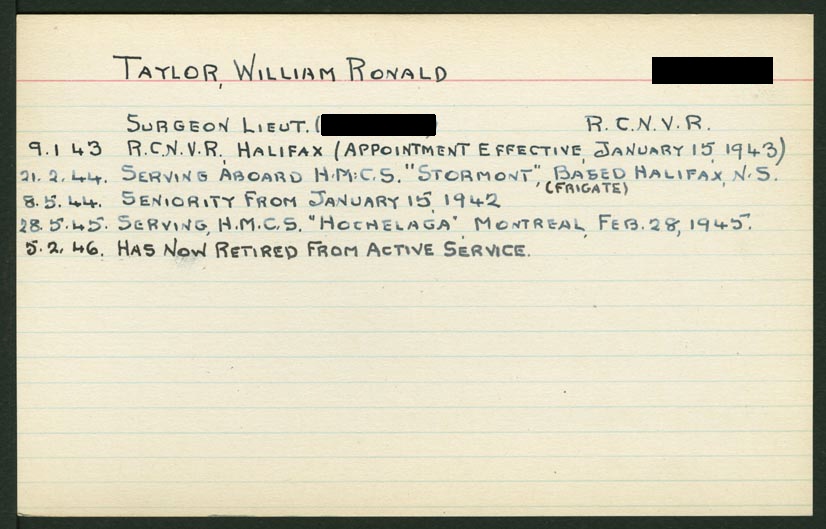 TAYLOR, WILLIAM RONALD
SURGEON LIEUT. ( ) R.C.N.V.R.
9.1 43 R.C.N.V.R, HALIFAX (APPOINTMENT EFFECTIVE, JANUARY 15, 1943)
21.2.44. SERVING ABOARD H.M.C.S. "STORMONT", BASED HALIFAX, N.S.
(FRIGATE)
8.5.44. SENIORITY FROM JANUARY 15, 1942
28.5.45. SERVING, H.M.C.S. "HOCHELAGA" MONTREAL, FEB. 28, 1945.
5.2.46. HAS NOW RETIRED FROM ACTIVE SERVICE.